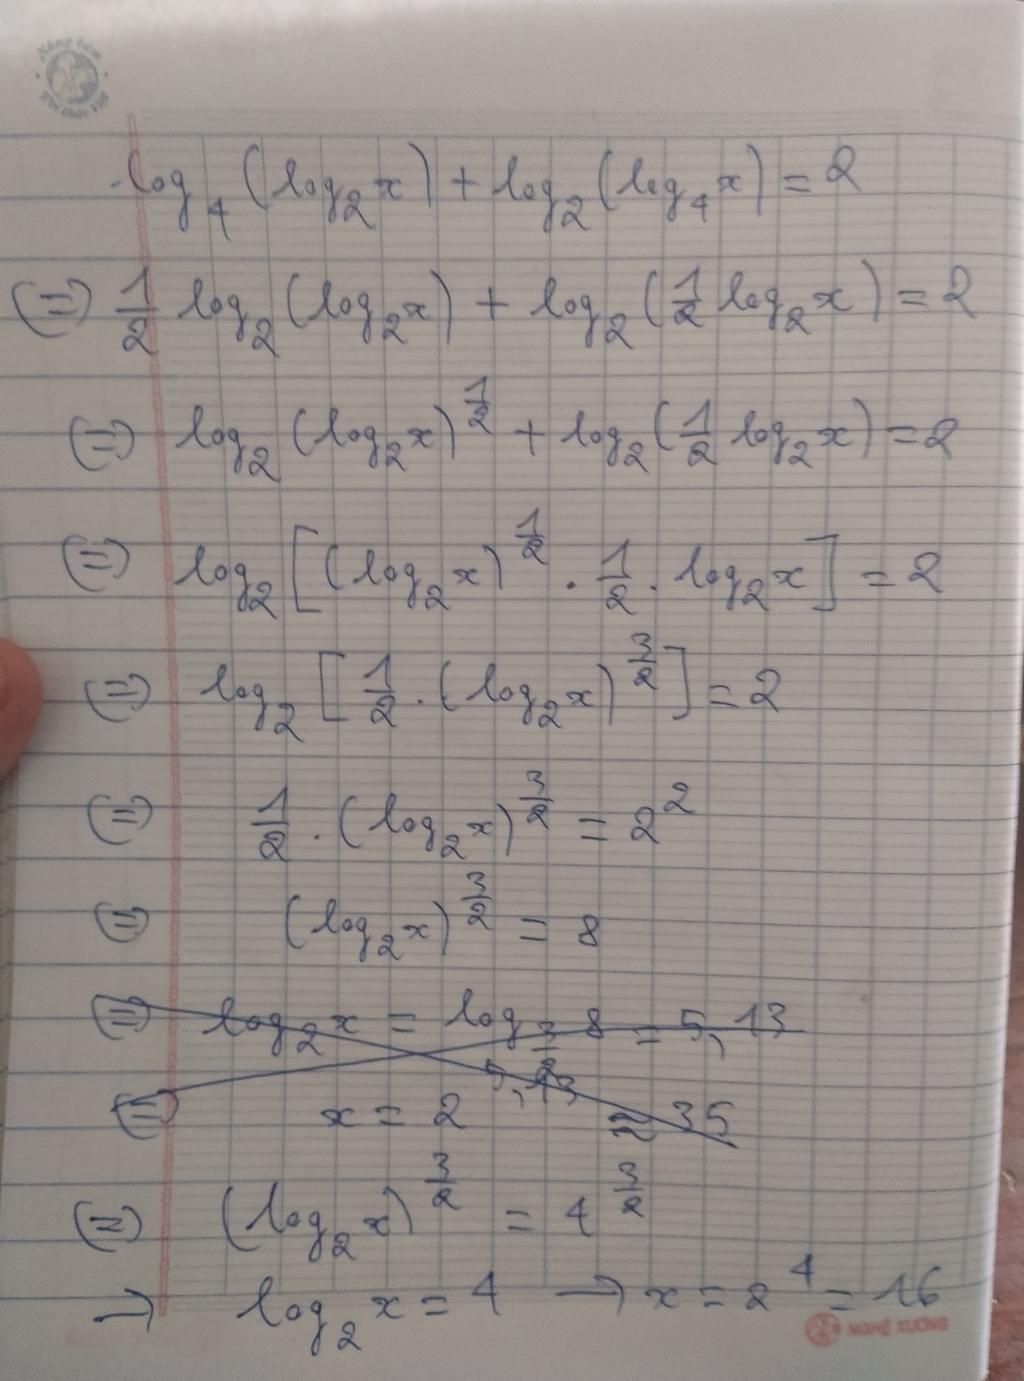 log₄(log₂x) + log₂(log₄x) = 2
(=) 1/2 log₂(log₂x) + log₂(1/2 log₂x) = 2
(=) log₂(log₂x)^(1/2) + log₂(1/2 log₂x) = 2
(=) log₂[(log₂x)^(1/2) . 1/2 . log₂x] = 2
(=) log₂[1/2 . (log₂x)^(3/2)] = 2
(=) 1/2 . (log₂x)^(3/2) = 2²
(=) (log₂x)^(3/2) = 8
(=) log₂x = log_(3/2) 8 = 5,13
(=) x = 2^(5,13) = 35
(=) (log₂x)^(3/2) = 4^(3/2)
→ log₂x = 4 → x = 2⁴ = 16
NGHỆ XƯƠNG